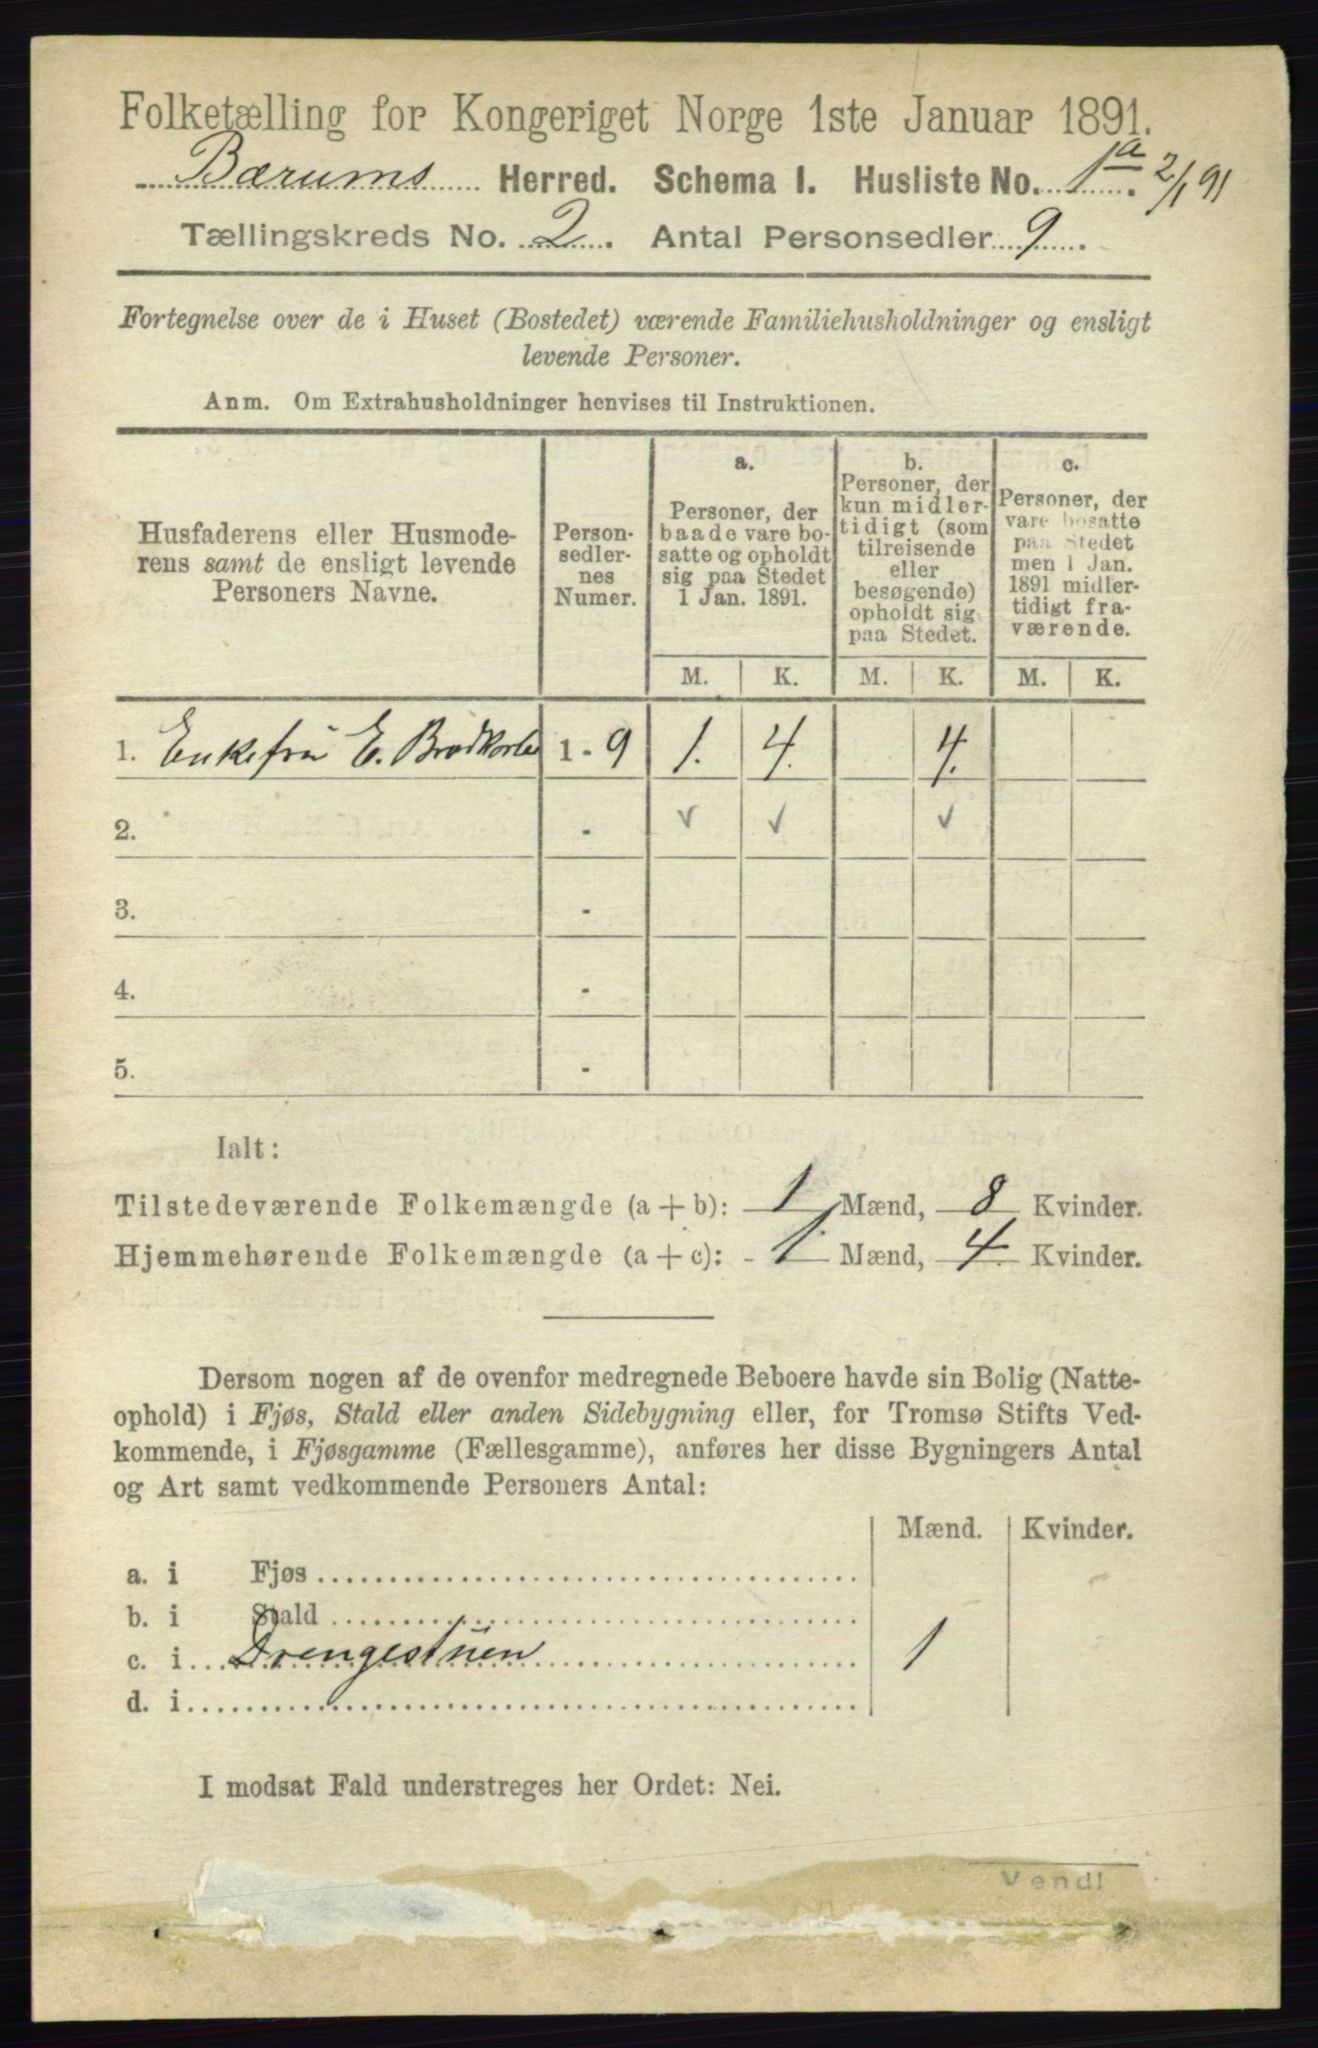 Folketælling for Kongeriget Norge 1ste Januar 1891.
Bærums Herred. Schema I. Husliste No. 1a. 2/1 91
Tællingskreds No. 2. Antal Personsedler 9.
Fortegnelse over de i Huset (Bostedet) værende Familiehusholdninger og ensligt
levende Personer.
Anm. Om Extrahusholdninger henvises til Instruktionen.
Husfaderens eller Husmode-
rens samt de ensligt levende
Personers Navne.
Person-
sedler-
nes
Numer.
a.
Personer, der
baade vare bo-
satte og opholdt
sig paa Stedet
1 Jan. 1891.
b.
Personer, der
kun midler-
tidigt (som
tilreisende
eller
besøgende)
opholdt sig
paa Stedet.
c.
Personer, der
vare bosatte
paa Stedet
men 1 Jan.
1891 midler-
tidigt fra-
værende.
M. K. M. K. M. K.
1. Enkefru E. 1 - 9 1. 4. 4.
2. - ✓ ✓ ✓
3. -
4. -
5. -
Ialt:
Tilstedeværende Folkemængde (a + b): 1 Mænd, 8 Kvinder.
Hjemmehørende Folkemængde (a + c): - 1. Mænd, 4. Kvinder.
Dersom nogen af de ovenfor medregnede Beboere havde sin Bolig (Natte-
ophold) i Fjøs, Stald eller anden Sidebygning eller, for Tromsø Stifts Ved-
kommende, i Fjøsgamme (Fællesgamme), anføres her disse Bygningers Antal
og Art samt vedkommende Personers Antal:
Mænd. Kvinder.
a. i Fjøs
b. i Stald
c. i Drengestuen 1
d. i
I modsat Fald understreges her Ordet: Nei.
Vend!